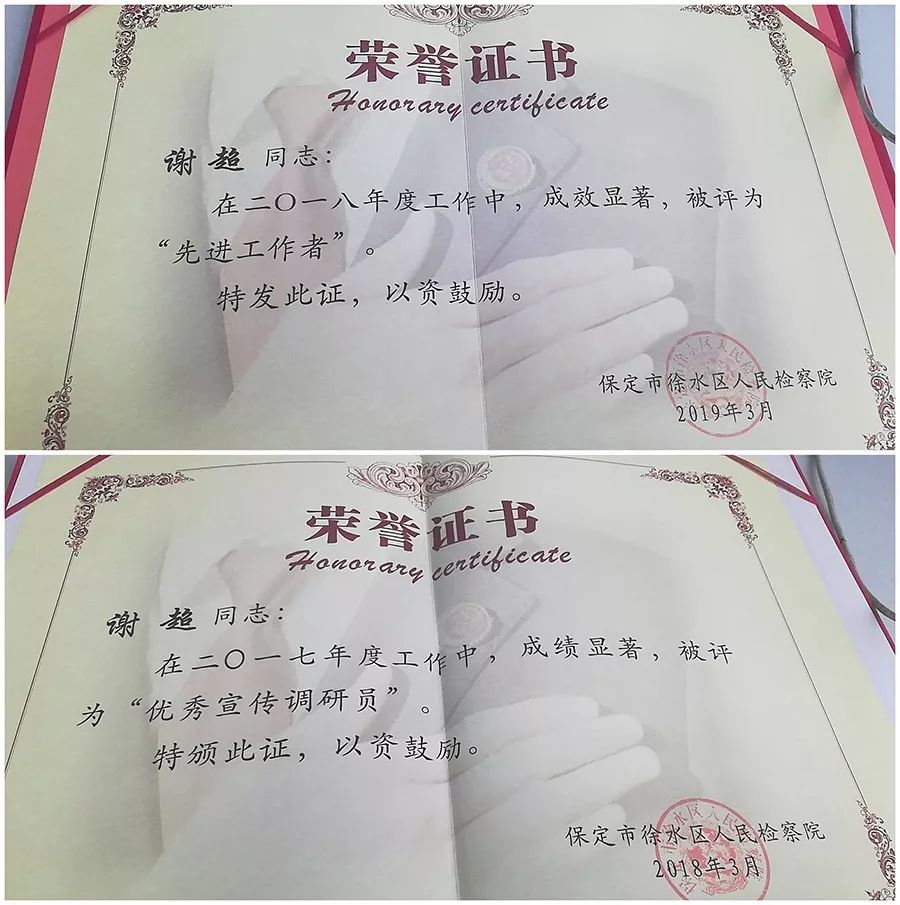 荣誉证书
Honorary certificate
谢超 同志：
在二〇一八年度工作中，成效显著，被评为
“先进工作者”。
特发此证，以资鼓励。
保定市徐水区人民检察院
2019年3月
荣誉证书
Honorary certificate
谢超 同志：
在二〇一七年度工作中，成绩显著，被评
为“优秀宣传调研员”。
特颁此证，以资鼓励。
保定市徐水区人民检察院
2018年3月